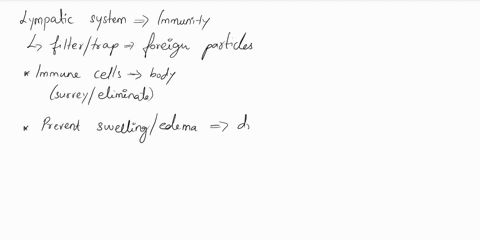 Lympatic system => Immunity
↳ filter/trap => foreign particles
* Immune cells → body
(surrey/eliminate)
* Prevent swelling/edema => di